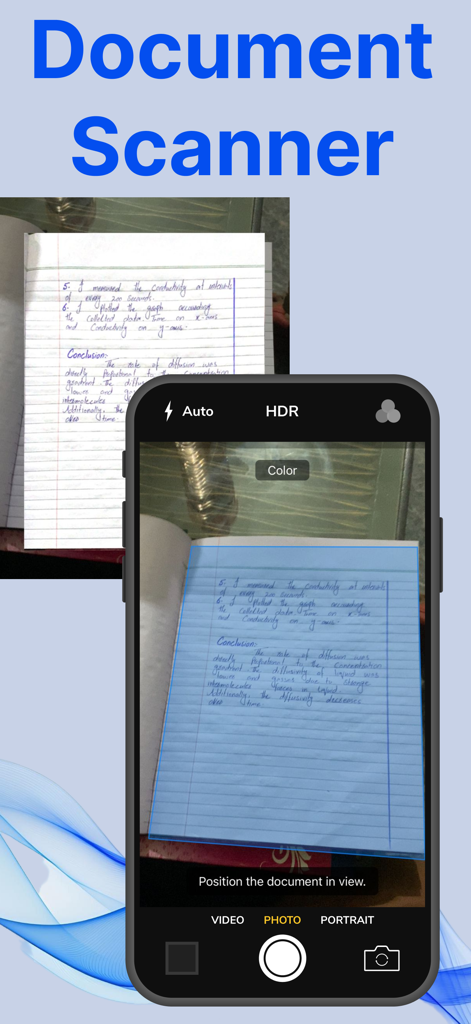 Document
Scanner
5. I measured the conductivity at intervals
of every 20 seconds.
6. I plotted the graph according
the collected data. Time on x-axis
and Conductivity on y-axis.
Conclusion:
The rate of diffusion was
directly Proportional to the Concentration
gradient the diffus
lower and g
intermolecular
Additionally, the
also time
Auto
HDR
Color
5. I measured the conductivity at intervals
of every 20 seconds.
6. I plotted the graph according
the collected data. Time on x-axis
and Conductivity on y-axis.
Conclusion:
The rate of diffusion was
directly Proportional to the Concentration
gradient the diffusivity of liquid was
lower and due to
intermolecular forces in liquid.
Additionally, the diffusivity
also time
Position the document in view.
VIDEO
PHOTO
PORTRAIT